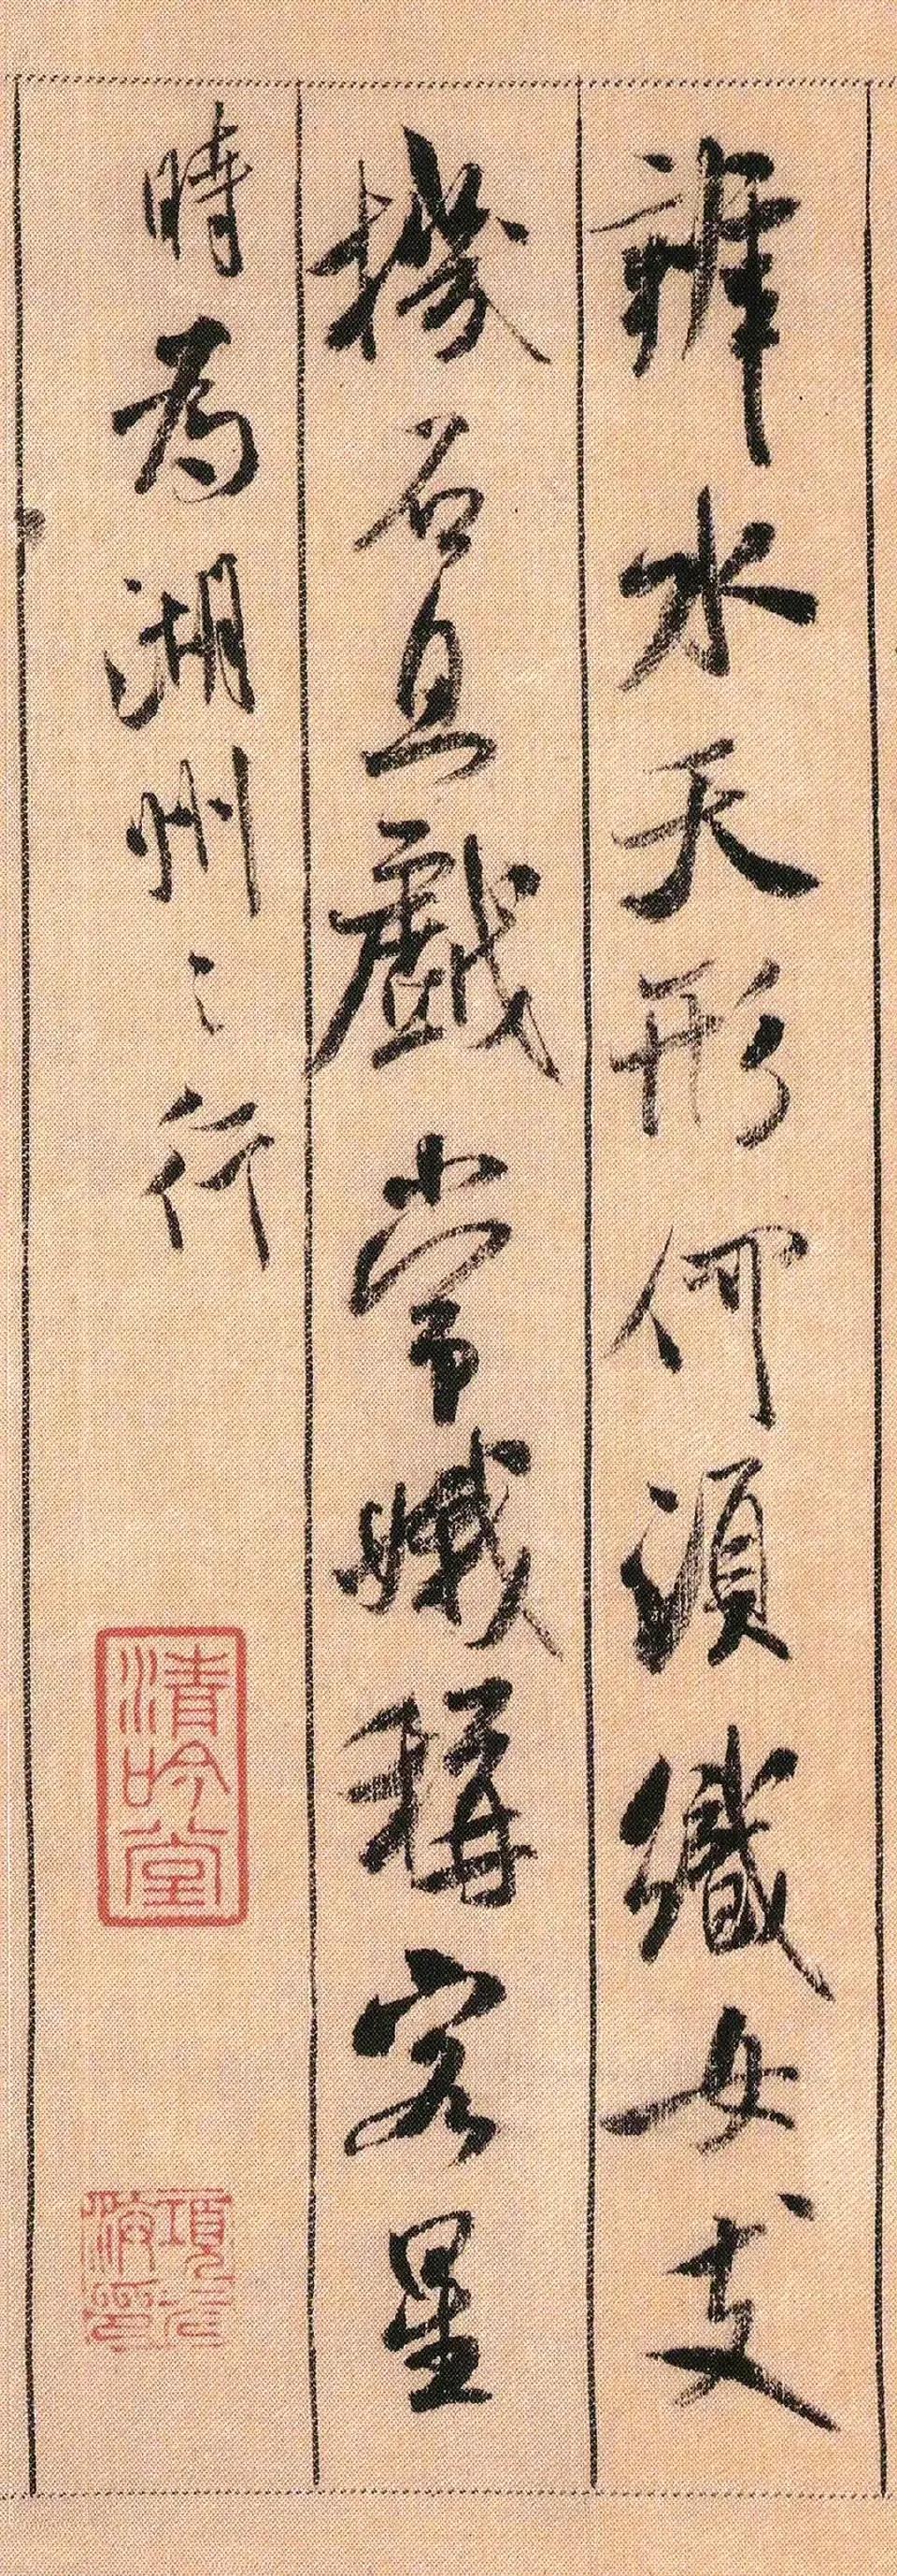 辨水天形何須織女支
機石且戲常娥稱客星
時為湖州之行
清吟堂
項元汴印